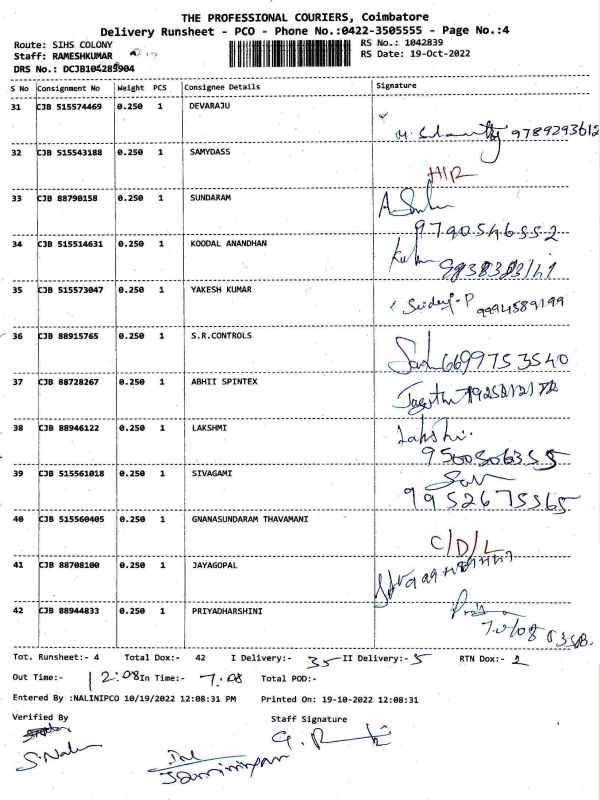 THE PROFESSIONAL COURIERS, Coimbatore
Delivery Runsheet - PCO - Phone No.:0422-3505555 - Page No.:4
Route: SIHS COLONY RS No.: 1042839
Staff: RAMESHKUMAR RS Date: 19-Oct-2022
DRS No.: DCJB104283904
S No Consignment No Weight PCS Consignee Details Signature
31 CJB 515574469 0.250 1 DEVARAJU 9789293612
32 CJB 515543188 0.250 1 SAMYDASS H/R
33 CJB 88790158 0.250 1 SUNDARAM 9790546552
34 CJB 515514631 0.250 1 KOODAL ANANDHAN
35 CJB 515573047 0.250 1 YAKESH KUMAR 9994589199
36 CJB 88915765 0.250 1 S.R.CONTROLS 6699753540
37 CJB 88728267 0.250 1 ABHII SPINTEX
38 CJB 88946122 0.250 1 LAKSHMI
39 CJB 515561018 0.250 1 SIVAGAMI
40 CJB 515560405 0.250 1 GNANASUNDARAM THAVAMANI C/D/L
41 CJB 88708100 0.250 1 JAYAGOPAL
42 CJB 88944833 0.250 1 PRIYADHARSHINI
Tot. Runsheet:- 4 Total Dox:- 42 I Delivery:- 35 II Delivery:- 5 RTN Dox:- 2
Out Time:- 12:08 In Time:- 7.08 Total POD:-
Entered By :NALINIPCO 10/19/2022 12:08:31 PM Printed On: 19-10-2022 12:08:31
Verified By Staff Signature